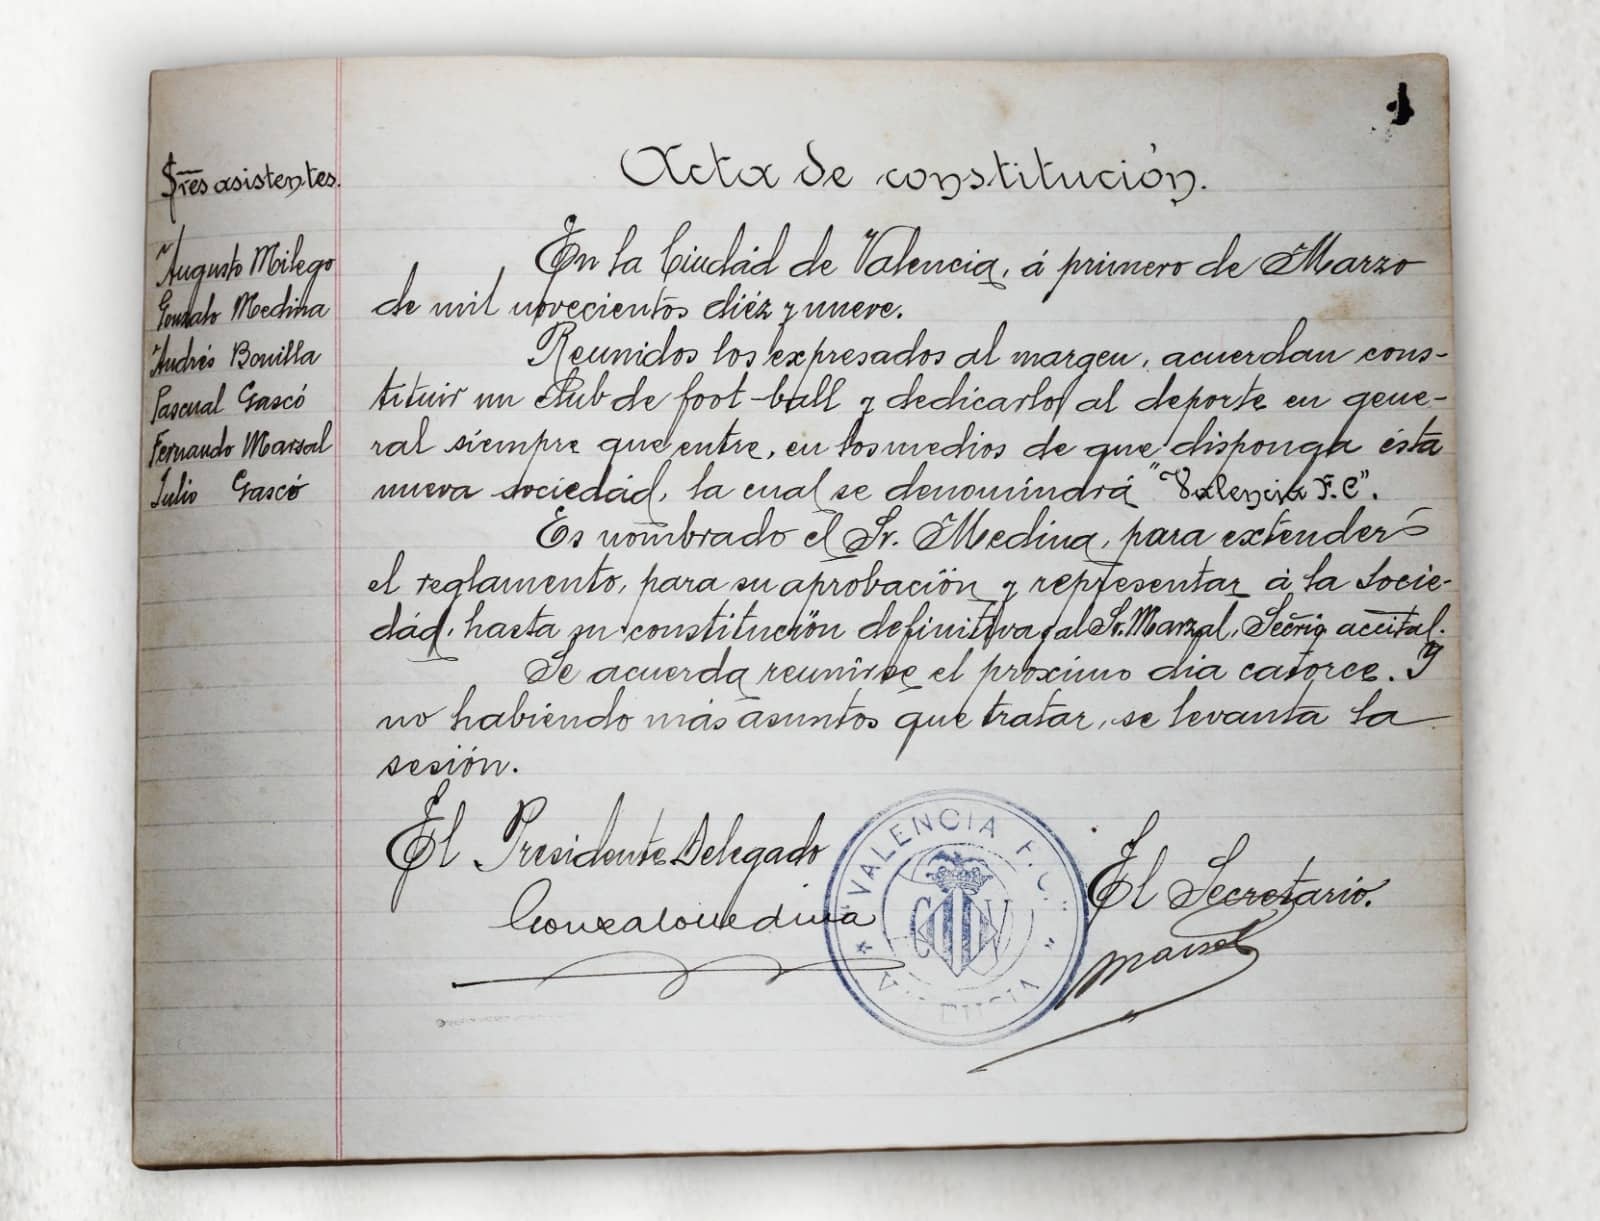 1
Acta de constitución.
Sres asistentes.
Augusto Milego
Gonzalo Medina
Andrés Bonilla
Pascual Gascó
Fernando Marsal
Julio Gascó
En la Ciudád de Valencia, á primero de Marzo
de mil novecientos diéz y nueve.
Reunidos los expresados al margen, acuerdan cons-
tituir un Club de foot-ball y dedicarlo al deporte en gene-
ral siempre que entre, en los medios de que disponga ésta
nueva sociedád, la cual se denominará "Valencia F.C".
Es nombrado el Sr. Medina, para extender
el reglamento, para su aprobación y representar á la Socie-
dád, hasta su constitución definitiva y al Sr. Marzal, accital.
Se acuerda reunirse el próximo dia catorce. Y
no habiendo más asuntos que tratar, se levanta la
sesión.
El Presidente Delegado
Gonzalo Medina
VALENCIA F.C.
CV
El Secretario.
Marsal